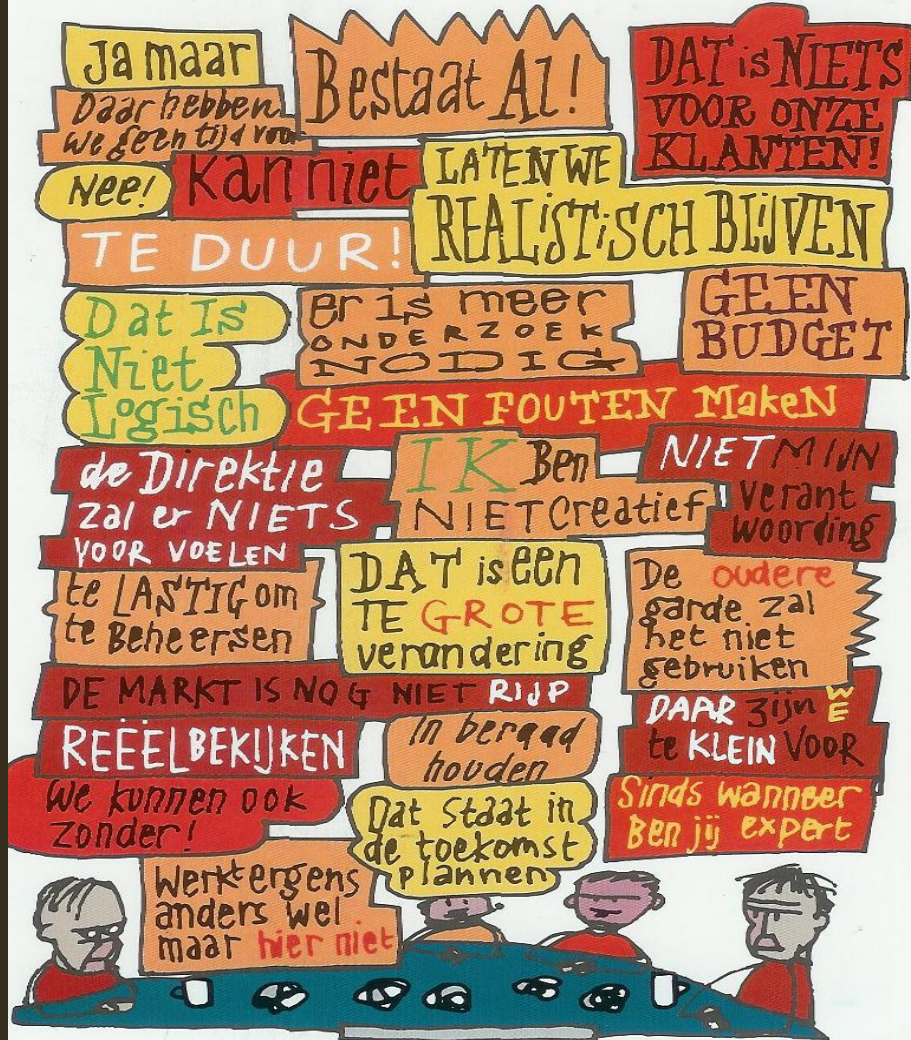 Ja maar
Daar hebben
we geen tijd voor
Bestaat Al!
DAT is NIETS
VOOR ONZE
KLANTEN!
Nee!
kan niet
LATEN WE
REALiSTiSCH BLIJVEN
TE DUUR!
Dat Is
Niet
Logisch
er is meer
ONDERZOEK
NODIG
GEEN
BUDGET
GEEN FOUTEN MakeN
de Direktie
zal er NIETS
VOOR VOELEN
IK Ben
NIET creatief
NIET MIJN
verant
woording
te LASTIG om
te Beheersen
DAT is een
TE GROTE
verandering
De oudere
garde zal
het niet
gebruiken
DE MARKT IS NOG NIET RIJP
REËELBEKIJKEN
In beraad
houden
DAAR zijn WE
te KLEIN VOOR
We kunnen ook
zonder!
Dat staat in
de toekomst
plannen
Sinds wanneer
Ben jij expert
Werkt ergens
anders wel
maar hier niet